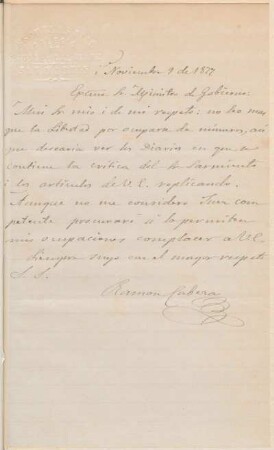 Noviembre 9 de 1878
Excmo Sr Ministro de Gobierno:
Mui Sr mio i de mi respeto: no leo mas
que la Libertad por ocupara de minuro, asi
que desearia ver los Diarios en que se
contiene la critica del Sr Sarmiento
i los articulos de V. E. replicando.
Aunque no me considero Juez com
petente, procuraré si lo permiten
mis ocupaciones complacer a V. E.
Siempre suyo con el mayor respeto
S. S.
Ramon Cabeza